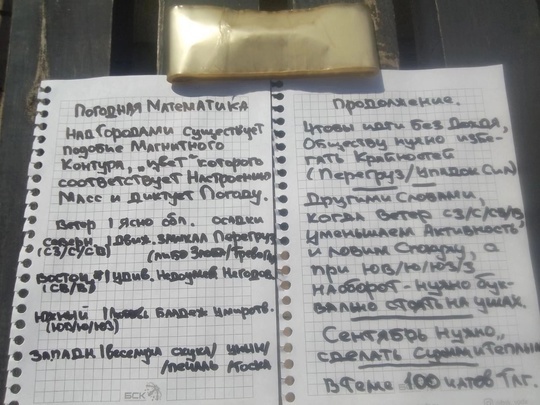 Погодная Математика
Над Городами существует
подобие Магнитного
Контура, "цвет" которого
соответствует Настроению
Масс и диктует Погоду.
Ветер | Ясно обл. осадки
Северн | Движ. Перегруз
(СЗ/С/СВ) (либо Злоба/Тревога)
Восточн | Удив. Недоумен Негодов
(СВ/В)
Южный | Блаж Умиротв.
(ЮВ/Ю/ЮЗ)
Западн | Веселуха скука/ уныни/
/печаль Тоска
БСК
Продолжение.
Чтобы идти без Дождя,
Обществу нужно избе-
гать Крайностей
(Перегруз/Упадок Сил)
Другими Словами,
когда Ветер СЗ/С/СВ/В
уменьшаем Активность,
и ловим а
при ЮВ/Ю/ЮЗ/З
наоборот - нужно бук-
вально стоять на ушах.
Сентябрь нужно
сделать
в теме 100 чатов Тлг.